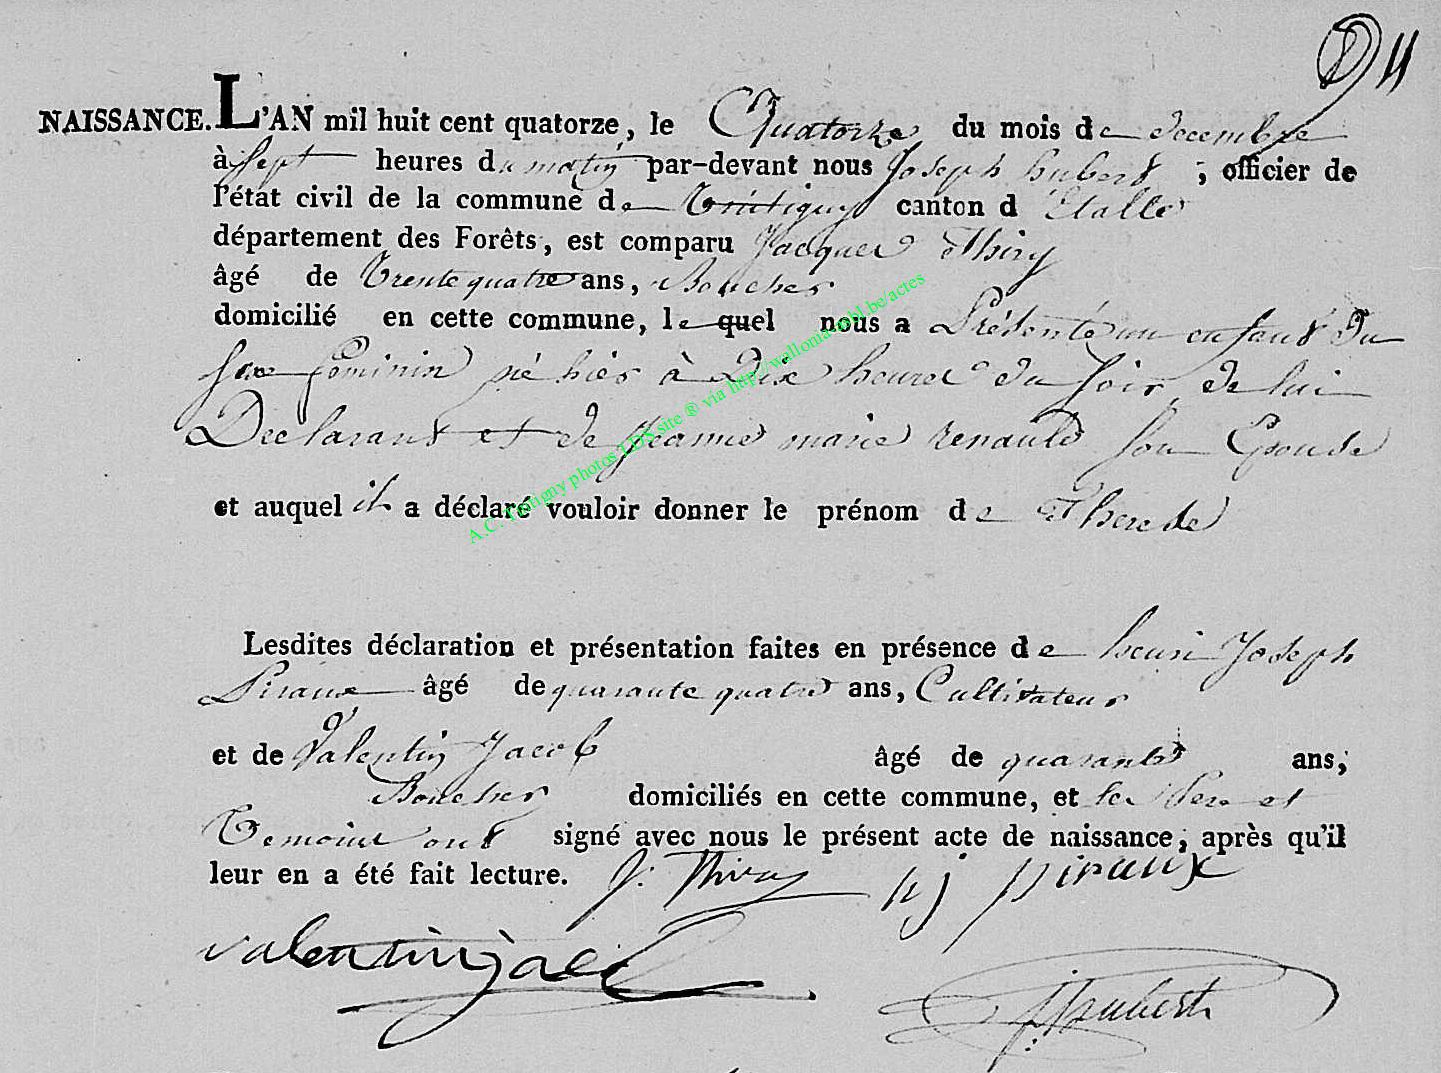 94
NAISSANCE. L'AN mil huit cent quatorze, le Quatorze du mois de decembre
à Sept heures du matin par-devant nous Joseph hubert ; officier de
l'état civil de la commune de Tintigny canton d'Etalle
département des Forêts, est comparu Jacques Thiry
âgé de Trente quatre ans, Boucher
domicilié en cette commune, lequel nous a Présenté un enfant Du
sexe feminin né hier à Dix heures du soir, de lui
Declarant et de Jeanne marie renauld son Epouse
et auquel il a déclaré vouloir donner le prénom de Therese
Lesdites déclaration et présentation faites en présence de henri Joseph
Piraux âgé de quarante quatre ans, Cultivateur
et de Valentin Jacob âgé de quarante ans,
Boucher domiciliés en cette commune, et les Pere et
Temoins ont signé avec nous le présent acte de naissance, après qu'il
leur en a été fait lecture. J. Thiry hj piraux
valentin jacob
J hubert
A.C. Tintigny photos LDS site ® via http://wallonia-asbl.be/actes